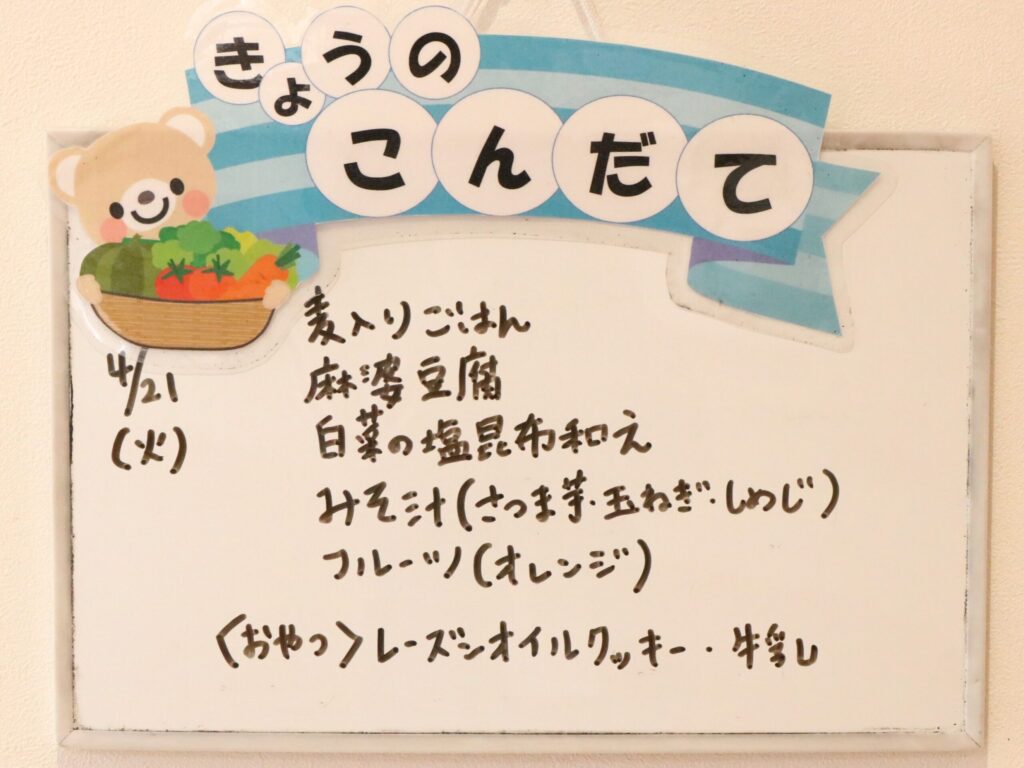 きょうの
こんだて
4/21
(火)
麦入りごはん
麻婆豆腐
白菜の塩昆布和え
みそ汁(さつま芋・玉ねぎ・しめじ)
フルーツ(オレンジ)
〈おやつ〉レーズンオイルクッキー・牛乳